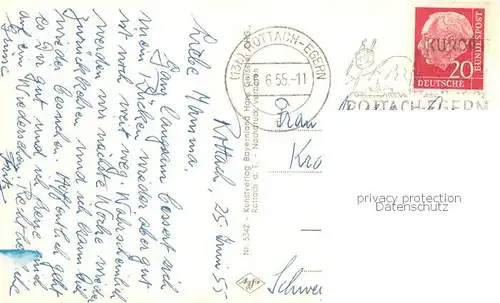 Rottach, 25. Juni 55
Liebe Mamma,
Ganz langsam bessert sich
mein Rücken wieder aber gut
ist noch weit weg. Wahrscheinlich
werden wir nächste Woche wieder
zurückkehren und ich kann Dich
wieder besuchen. Hoffentlich geht
es Dir gut und ich freue mich
auf ein Wiedersehen. Recht herzliche
Grüsse
Fritz
Nr. 5342 - Kunstverlag Bayernland Hans
Rottach a. T. - Nachdruck verboten
Agfa
(13b) ROTTACH-EGERN
6.55.-11
KURORT
ROTTACH-EGERN
DEUTSCHE
BUNDESPOST
20
Frau
Schwei
privacy protection
Datenschutz